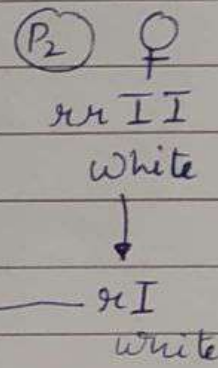 P2 ♀
rr II
White
rI
white